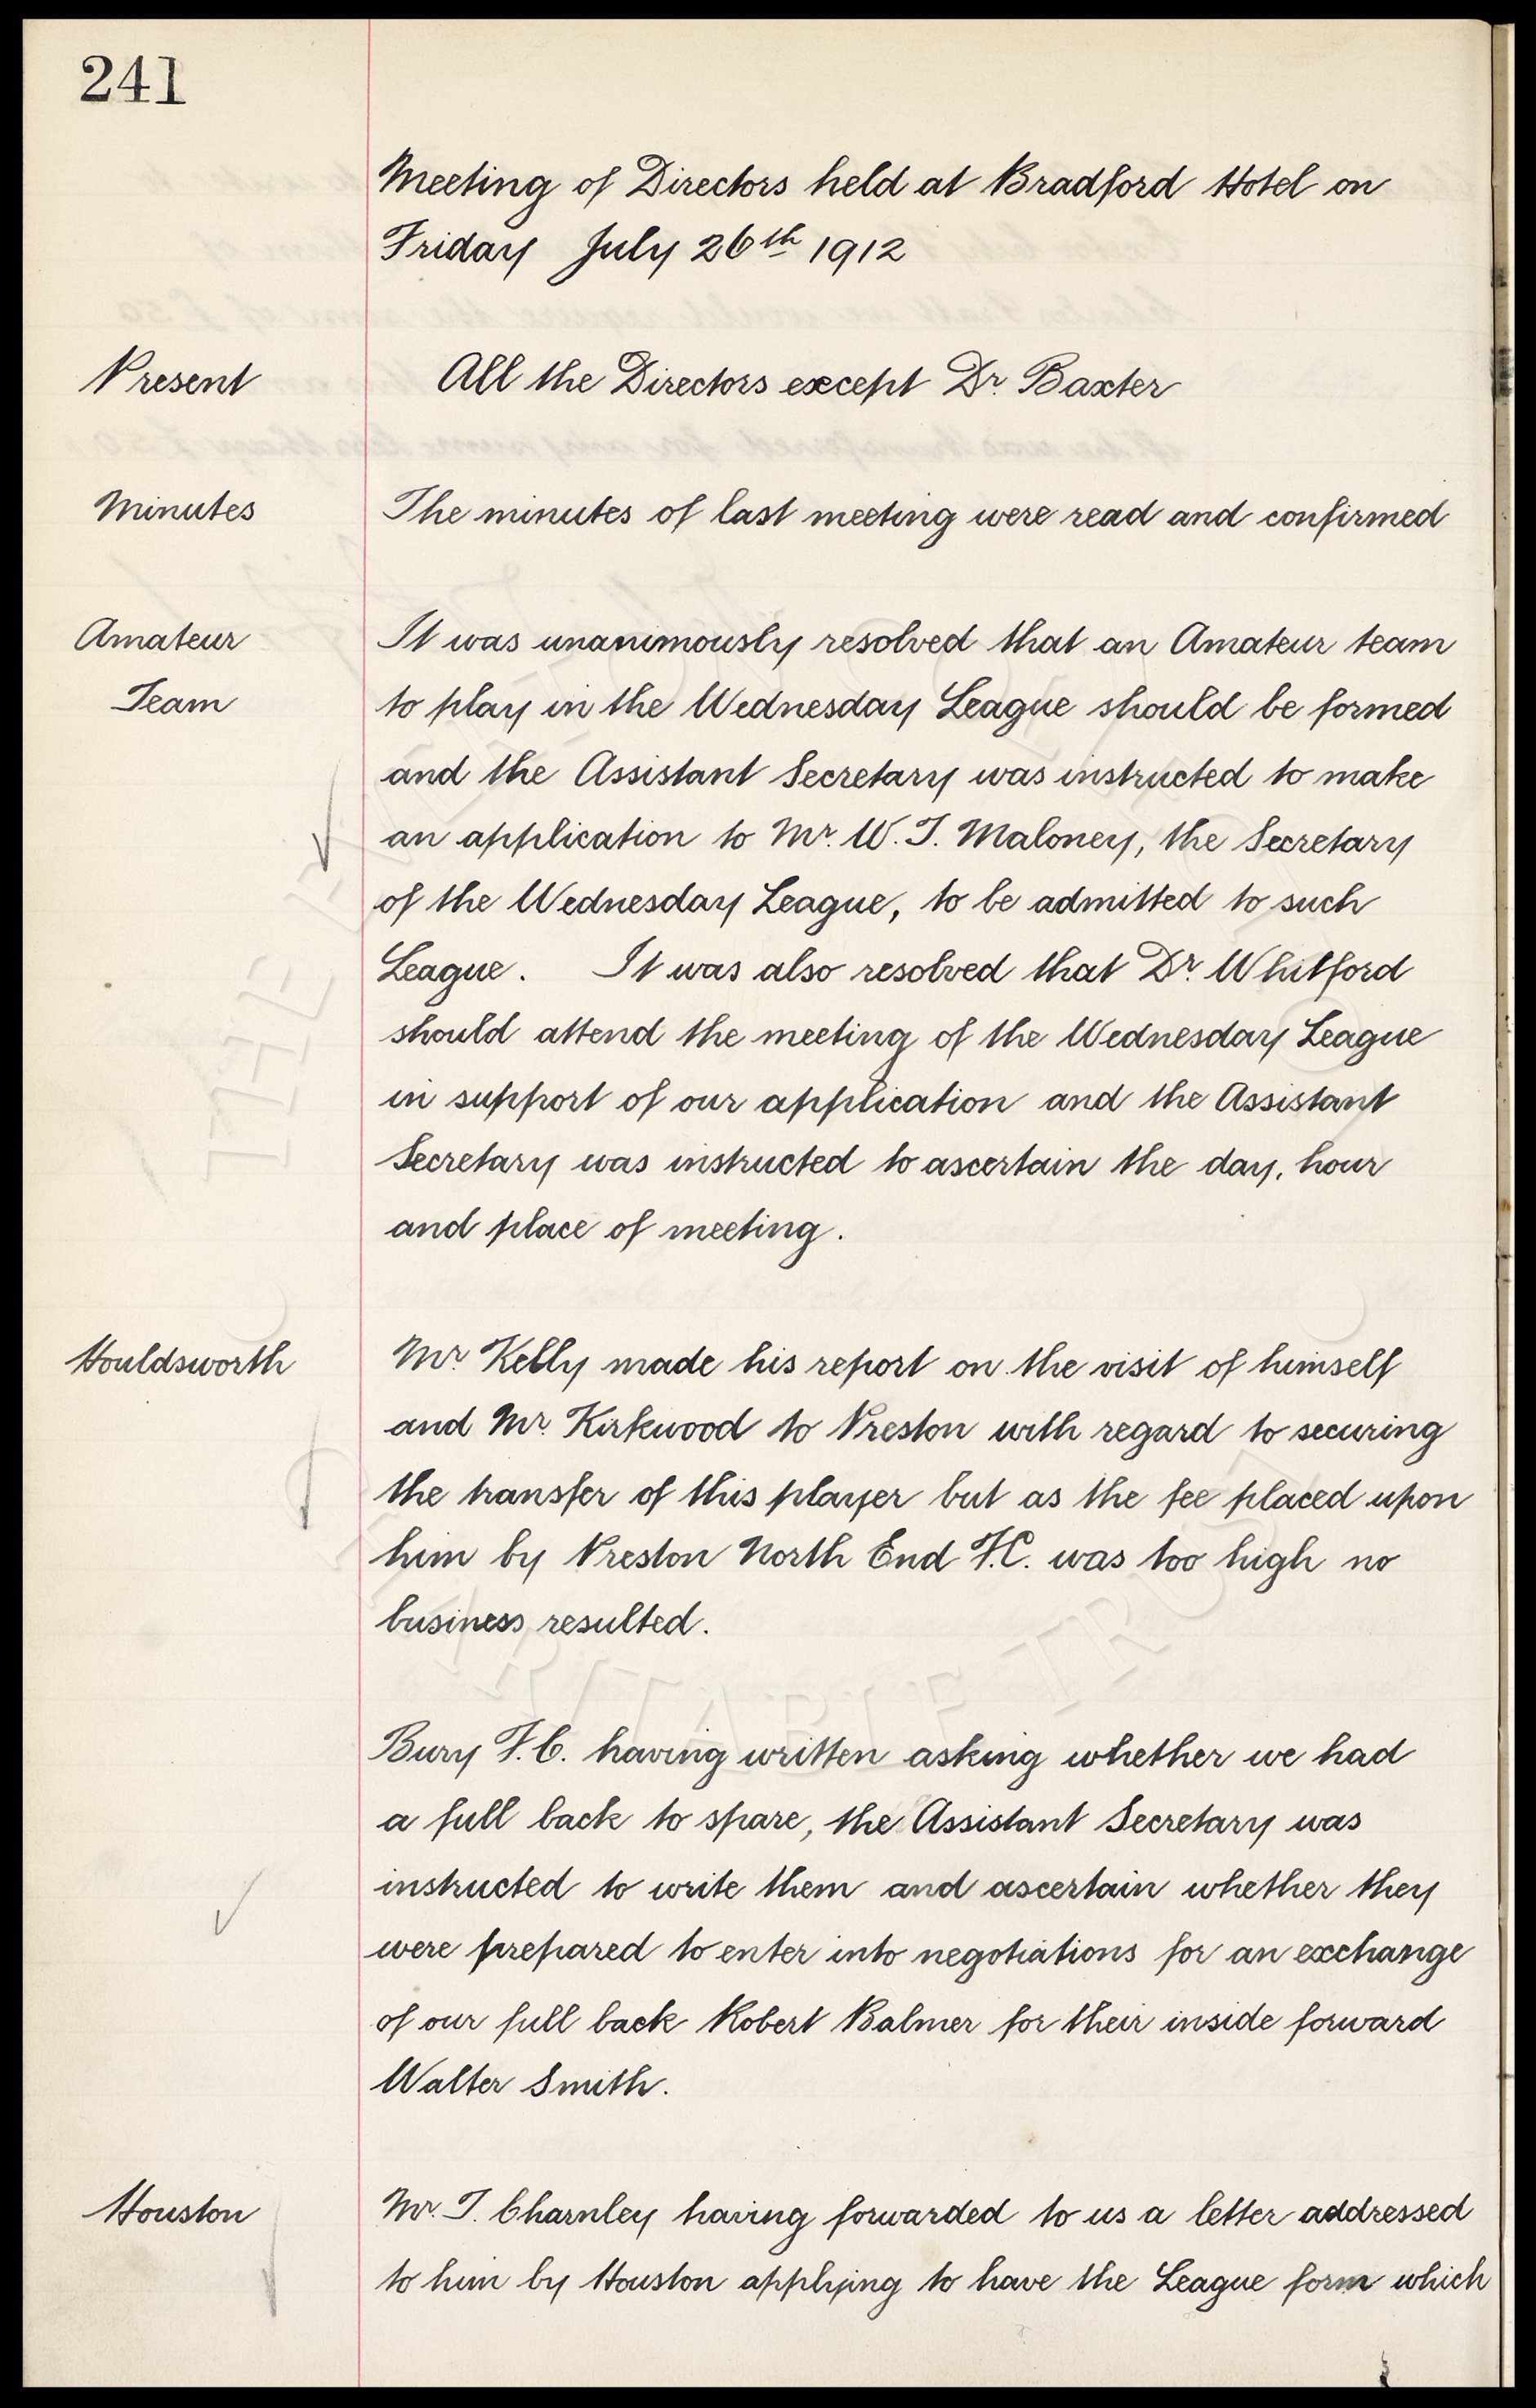 241
Meeting of Directors held at Bradford Hotel on
Friday July 26th 1912
Present
All the Directors except Dr. Baxter
Minutes
The minutes of last meeting were read and confirmed
Amateur
Team
It was unanimously resolved that an Amateur team
to play in the Wednesday League should be formed
and the Assistant Secretary was instructed to make
an application to Mr. W. T. Maloney, the Secretary
of the Wednesday League, to be admitted to such
League. It was also resolved that Dr. Whitford
should attend the meeting of the Wednesday League
in support of our application and the Assistant
Secretary was instructed to ascertain the day, hour
and place of meeting.
Houldsworth
Mr. Kelly made his report on the visit of himself
and Mr. Kirkwood to Preston with regard to securing
the transfer of this player but as the fee placed upon
him by Preston North End F.C. was too high no
business resulted.
Bury F.C. having written asking whether we had
a full back to spare, the Assistant Secretary was
instructed to write them and ascertain whether they
were prepared to enter into negotiations for an exchange
of our full back Robert Balmer for their inside forward
Walter Smith.
Houston
Mr. T. Charnley having forwarded to us a letter addressed
to him by Houston applying to have the League form which